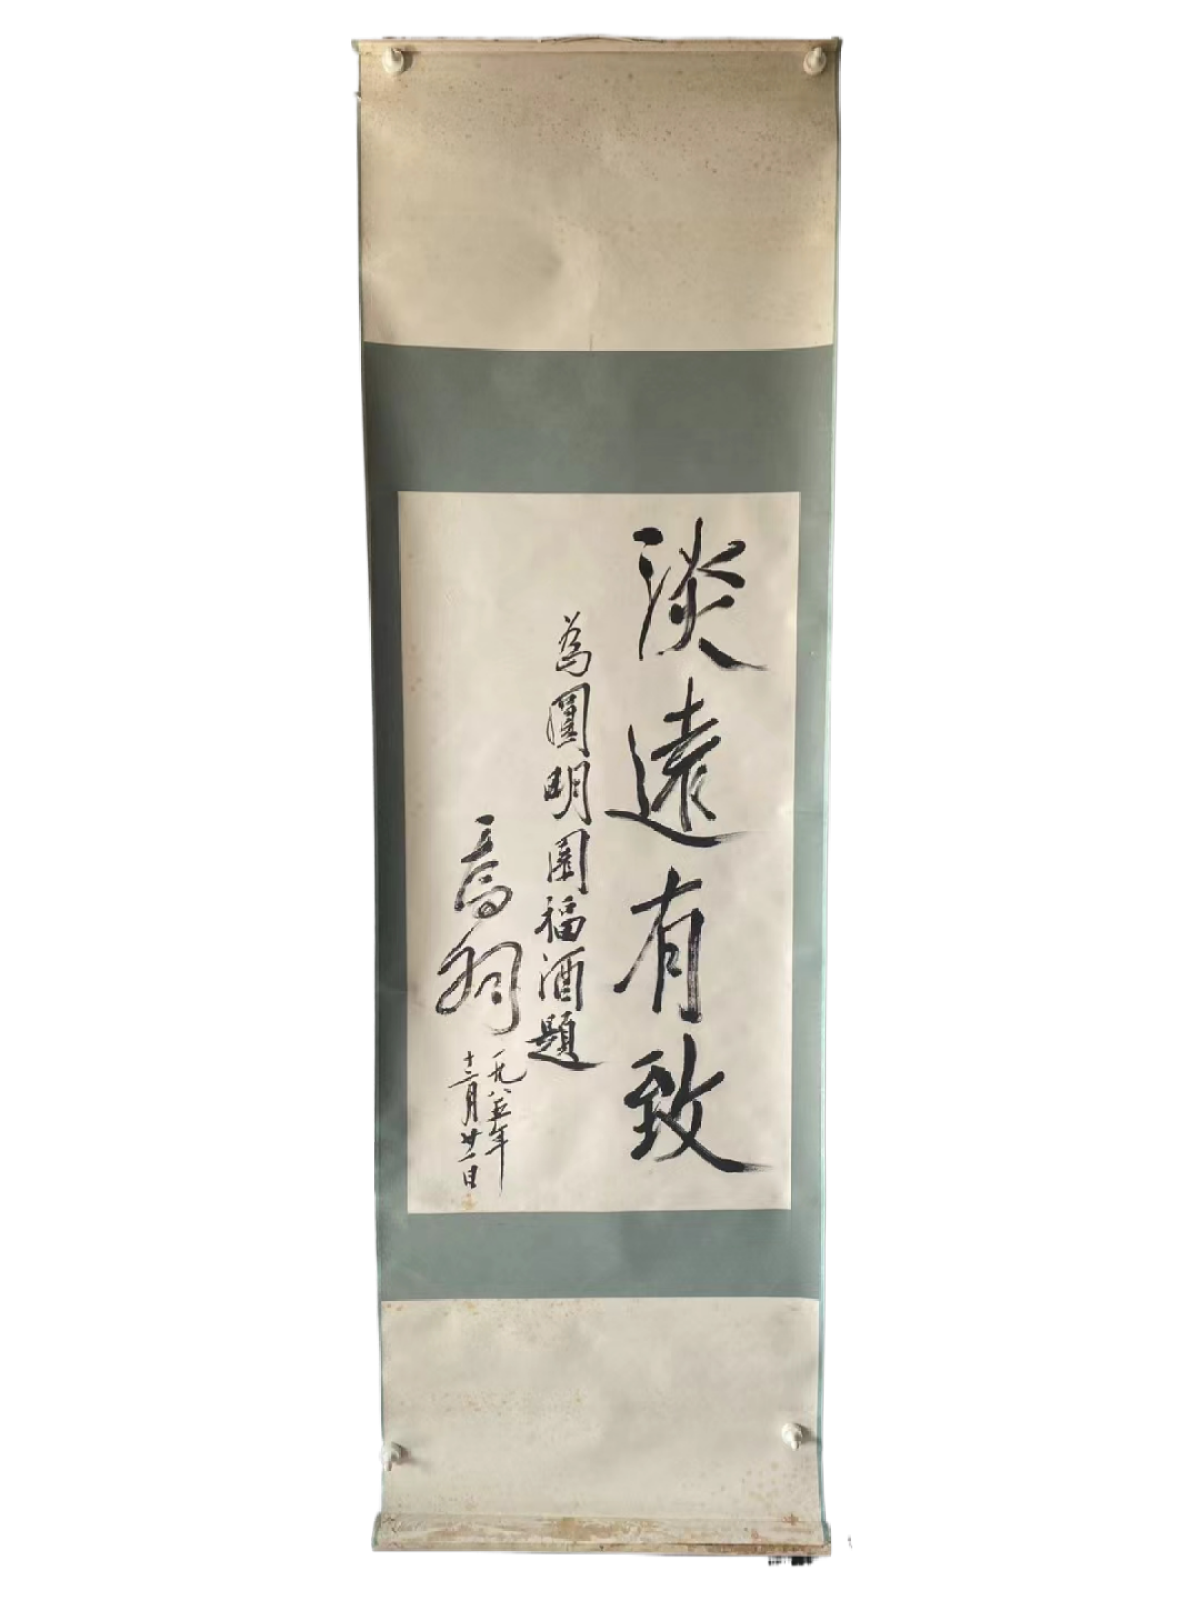 淡遠有致
為圓明園福酒題
喬羽
一九八五年
十二月廿一日